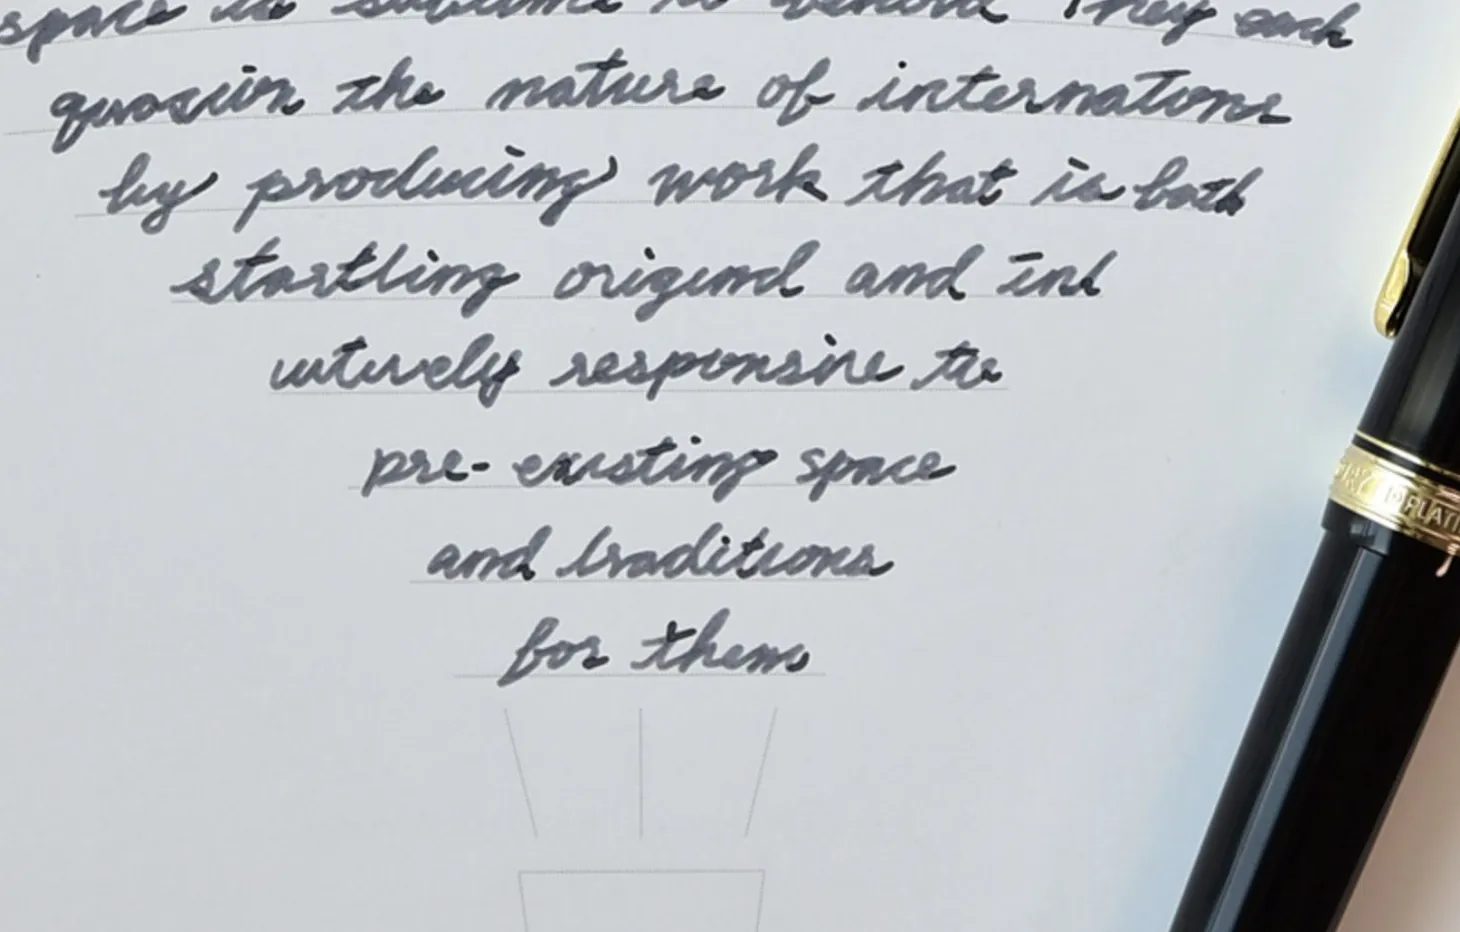 space is sublime to behold They each
quesiin the nature of internatons
by producing work that is both
startling original and int
uitively responsive to
pre-existing space
and traditions
for them
PLATI